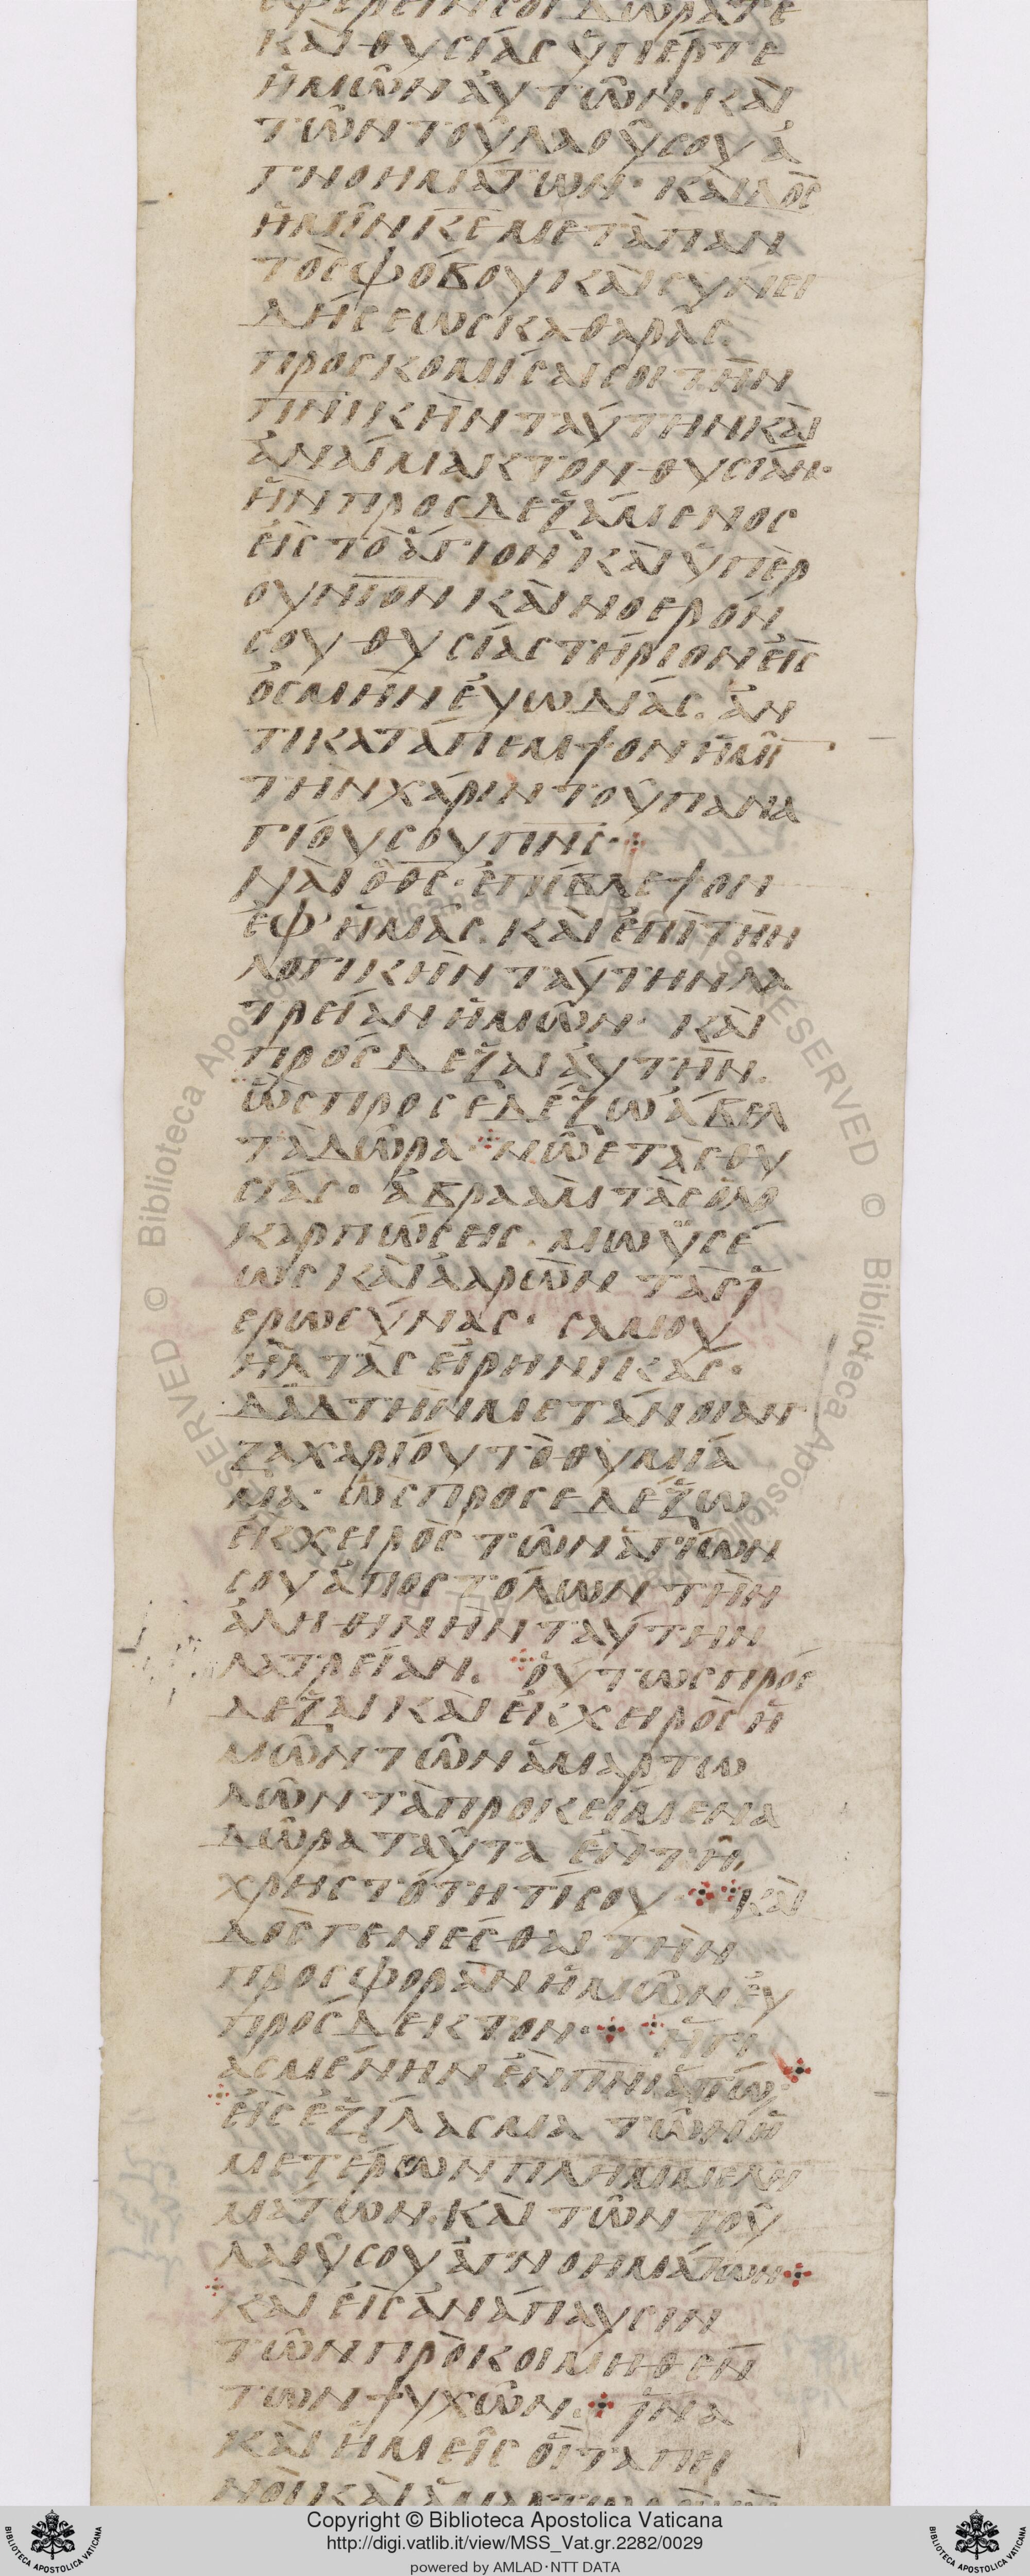 σφέρειν σοι δῶρά τε
καὶ θυσίας ὑπέρ τε
ἡμῶν αὐτῶν· καὶ
τῶν τοῦ λαοῦ σου ἀ
γνοημάτων· καὶ δὸς
ἡμῖν κε μετὰ παν
τὸς φόβου καὶ συνει
δήσεως καθαρᾶς
προσκομίσαι σοι τὴν
πνικὴν ταύτην καὶ
ἀναίμακτον θυσίαν·
ἣν προσδεξάμενος
εἰς τὸ ἅγιον καὶ ὑπερ
ουνιον καὶ νοερόν
σου θυσιαστήριον εἰς
ὀσμὴν εὐωδίας· ἀν
τικατάπεμψον ἡμῖ
τὴν χάριν τοῦ πανα
γίου σου πνς
ναὶ ὁ θς· ἐπίβλεψον
ἐφ' ἡμᾶς καὶ ἐπὶ τὴν
λογικὴν ταύτην λα
τρείαν ἡμῶν· καὶ
πρόσδεξαι αὐτήν·
ὡς προσεδέξω ἄβελ
τὰ δῶρα νῶε τὰς θυ
σίας· ἀβραὰμ τὰς ὁλο
καρπώσης· μωϋσέ
ως καὶ ἀαρὼν τὰς ἱ
ερωσύνας· σαμου
ὴλ τὰς εἰρηνικάς·
δαδ τὴν μετάνοιαν
ζαχαρίου τὸ θυμία
μα· ὡς προσεδέξω
ἐκ χειρὸς τῶν ἁγίων
σου ἀποστόλων τὴν
ἀληθινὴν ταύτην
λατρείαν· οὕτως πρόσ
δεξαι καὶ ἐκ χειρὸς ἡ
μῶν τῶν ἁμαρτω
λῶν τὰ προκείμενα
δῶρα ταῦτα ἐν τῇ
χρηστότητί σου καὶ
δὸς γενέσθαι τὴν
προσφορὰν ἡμῶν εὐ
πρόσδεκτον· ἡγι
ασμένην ἐν πνι ἁγίω·
εἰς ἐξίλασμα τῶν ἡ
μετέρων πλημμελη
μάτων· καὶ τῶν τοῦ
λαοῦ σου ἀγνοημάτων
καὶ εἰς ἀνάπαυσιν
τῶν προκοιμηθέν
των ψυχῶν· ἵνα
καὶ ἡμεῖς οἱ ταπει
νοὶ καὶ ἁμαρτωλοὶ
Copyright © Biblioteca Apostolica Vaticana
http://digi.vatlib.it/view/MSS_Vat.gr.2282/0029
powered by AMLAD・NTT DATA